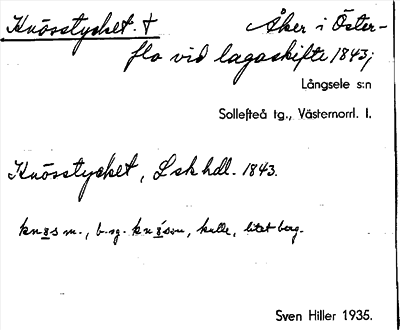 Knösstycket. † Åker i Öster-
flo vid lagaskifte 1843;
Långsele s:n
Sollefteå tg., Västernorrl. l.
Knösstycket, Lskhdl. 1843.
m., b.sg. kulle, litet berg.
Sven Hiller 1935.